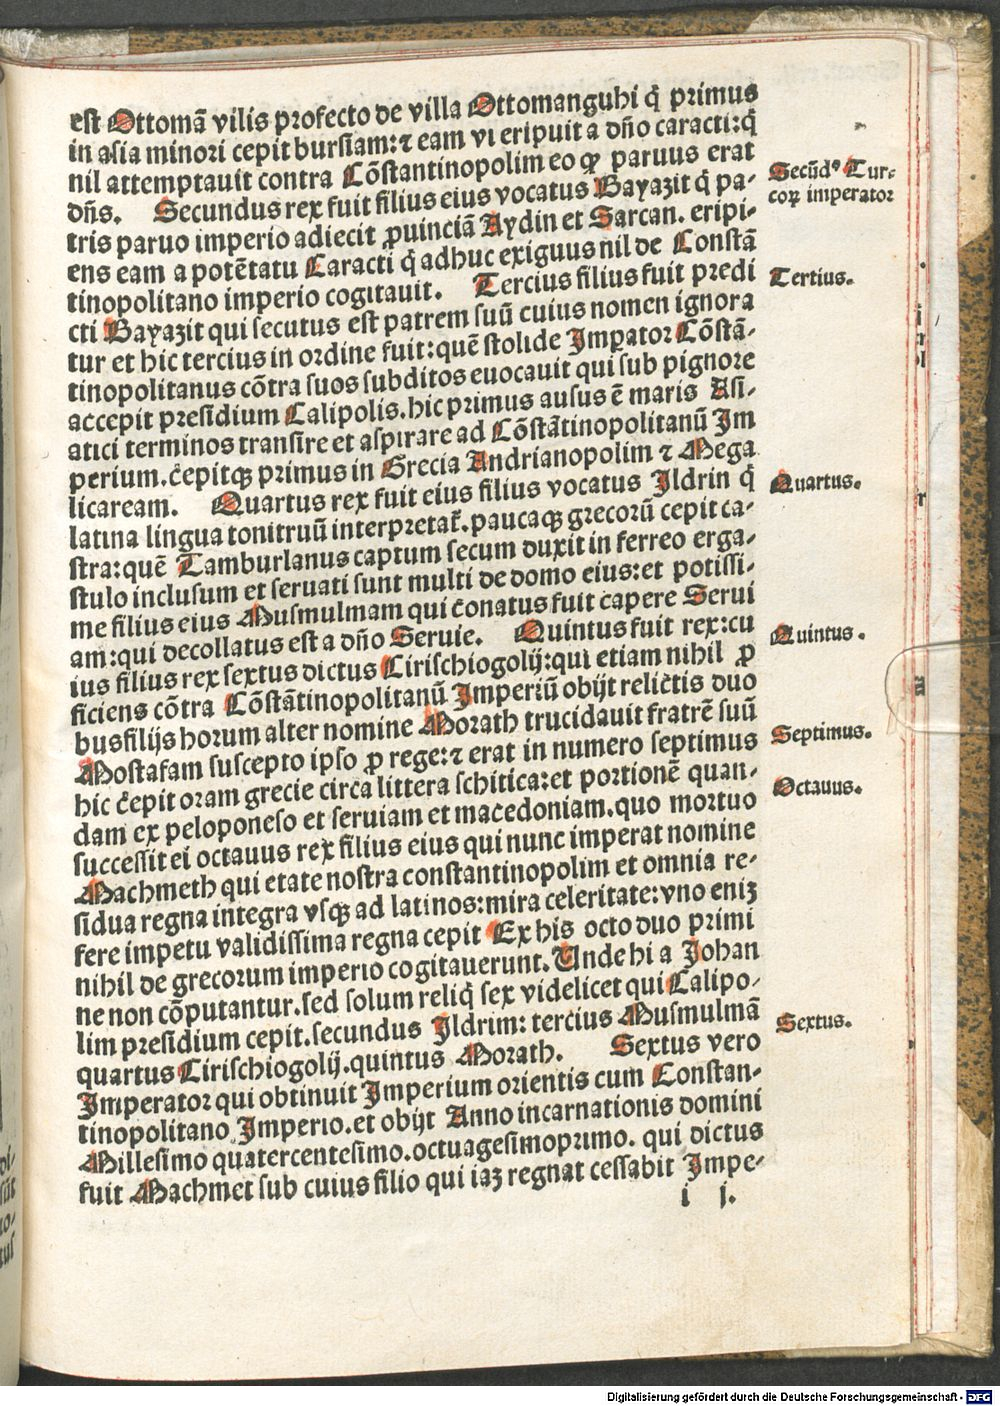 est Ottomā vilis profecto de villa Ottomanguhi q̄ primus
in asia minori cepit bursiam:⁊ eam vi eripuit a dño caracti:q̄
nil attemptauit contra Cōstantinopolim eo ꝙ paruus erat
dñs. Secundus rex fuit filius eius vocatus Bayazit q̄ pa-
tris paruo imperio adiecit ꝓuinciā Aydin et Sarcan. eripi-
ens eam a potētatu Caracti q̄ adhuc exiguus nil de Constā
tinopolitano imperio cogitauit. Tercius filius fuit predi
cti Bayazit qui secutus est patrem suū cuius nomen ignora
tur et hic tercius in ordine fuit:quē stolide Imꝑator Cōstā-
tinopolitanus cōtra suos subditos euocauit qui sub pignore
accepit presidium Calipolis.hic primus ausus ē maris Asi-
atici terminos transire et aspirare ad Cōstātinopolitanū Im
perium.c̄epitqꝫ primus in Grecia Andrianopolim ⁊ Mega
licaream. Quartus rex fuit eius filius vocatus Ildrin q̄
latina lingua tonitruū interpretat̄.paucaqꝫ grecorū cepit ca-
stra:quē Tamburlanus captum secum duxit in ferreo erga-
stulo inclusum et seruati sunt multi de domo eius:et potissi-
me filius eius Musmulmam qui c̄onatus fuit capere Serui
am:qui decollatus est a dño Seruie. Quintus fuit rex:cu
ius filius rex sextus dictus Cirischiogolij:qui etiam nihil ꝓ
ficiens cōtra Cōstātinopolitanū Imperiū obijt relictis duo
busfilijs horum alter nomine Morath trucidauit fratrē suū
Mostafam suscepto ipso ꝓ rege:⁊ erat in numero septimus
hic c̄epit oram grecie circa littera schitica:et portionē quan-
dam ex peloponeso et seruiam et macedoniam.quo mortuo
successit ei octauus rex filius eius qui nunc imperat nomine
Machmeth qui etate nostra constantinopolim et omnia re-
sidua regna integra vsqꝫ ad latinos:mira celeritate:vno eniꝫ
fere impetu validissima regna cepit Ex his octo duo primi
nihil de grecorum imperio cogitauerunt. Unde hi a Johan
ne non cōputantur.sed solum reliq̄ sex videlicet qui Calipo-
lim presidium cepit.secundus Ildrim: tercius Musmulmā
quartus Cirischiogolij.quintus Morath. Sextus vero
Imperator qui obtinuit Imperium orientis cum Constan-
tinopolitano Imperio.et obijt Anno incarnationis domini
Millesimo quatercentesimo.octuagesimoprimo. qui dictus
fuit Machmet sub cuius filio qui iaꝫ regnat cessabit Impe-
i j.
Secūdꝰ Tur-
coꝝ imperator
Tertius.
Quartus.
Quintus.
Septimus.
Octauus.
Sextus.
Digitalisierung gefördert durch die Deutsche Forschungsgemeinschaft - DFG